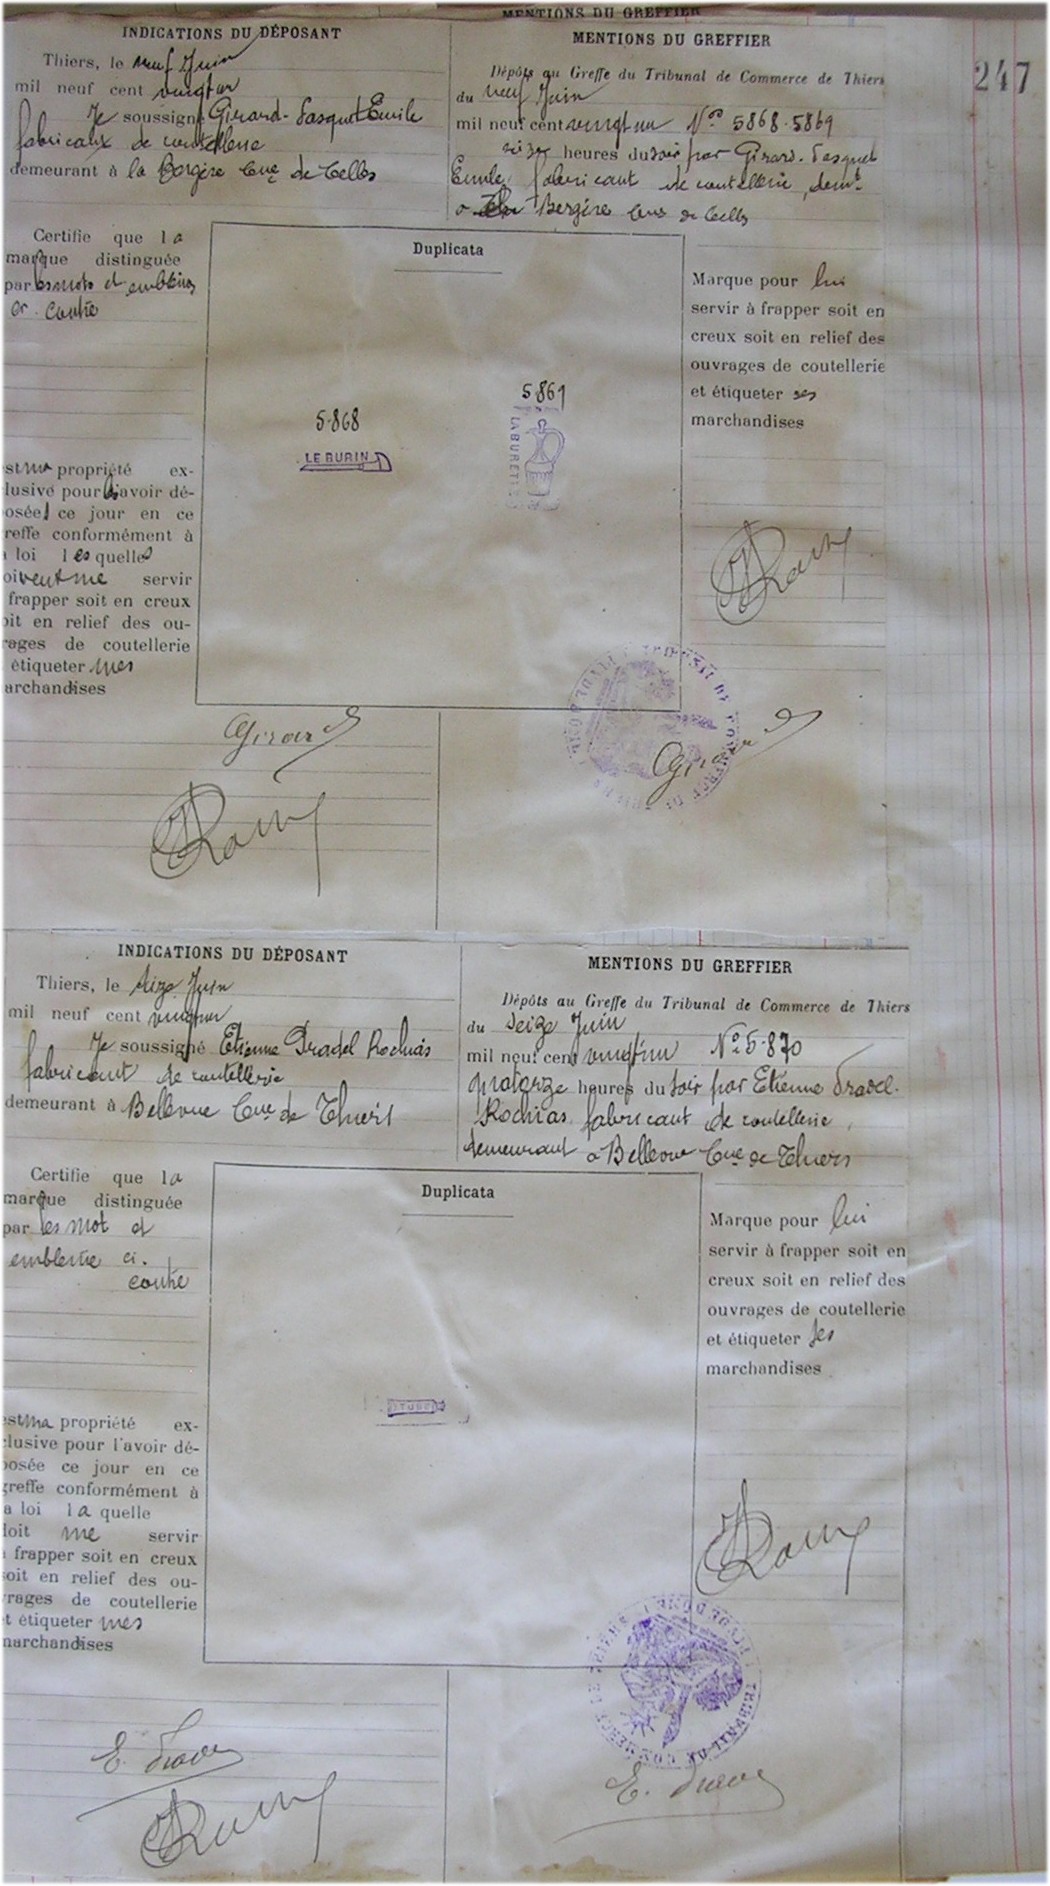 MENTIONS DU GREFFIER
247
INDICATIONS DU DÉPOSANT
Thiers, le neuf Juin
mil neuf cent vingt un
Je soussigné Girard-Sasquet Emile
fabricant de coutellerie
demeurant à la Bergère Cne de Celles
MENTIONS DU GREFFIER
Dépôts au Greffe du Tribunal de Commerce de Thiers
du neuf Juin
mil neuf cent vingt un Nos 5868-5869
seize heures du soir par Girard-Sasquet
Emile, fabricant de coutellerie, demt
à Bergère Cne de Celles
Certifie que la
marque distinguée
par les mots et emblèmes
ci-contre
est ma propriété ex-
clusive pour les avoir dé-
posées ce jour en ce
greffe conformément à
la loi lesquelles
doivent me servir
à frapper soit en creux
soit en relief des ou-
vrages de coutellerie
et étiqueter mes
marchandises
Duplicata
5868
LE BURIN
5869
LA BURETTE
Marque pour lui
servir à frapper soit en
creux soit en relief des
ouvrages de coutellerie
et étiqueter ses
marchandises
Girard
Girard
INDICATIONS DU DÉPOSANT
Thiers, le seize Juin
mil neuf cent vingt un
Je soussigné Etienne Pradel Rochias
fabricant de coutellerie
demeurant à Bellevue Cne de Thiers
MENTIONS DU GREFFIER
Dépôts au Greffe du Tribunal de Commerce de Thiers
du seize Juin
mil neuf cent vingt un No 5870
quatorze heures du soir par Etienne Pradel-
Rochias fabricant de coutellerie,
demeurant à Bellevue Cne de Thiers
Certifie que la
marque distinguée
par les mot et
emblème ci-
contre
est ma propriété ex-
clusive pour l'avoir dé-
posée ce jour en ce
greffe conformément à
la loi laquelle
doit me servir
à frapper soit en creux
soit en relief des ou-
vrages de coutellerie
et étiqueter mes
marchandises
Duplicata
Marque pour lui
servir à frapper soit en
creux soit en relief des
ouvrages de coutellerie
et étiqueter ses
marchandises
TRIBUNAL DE COMMERCE DE THIERS
E. Pradel
E. Pradel